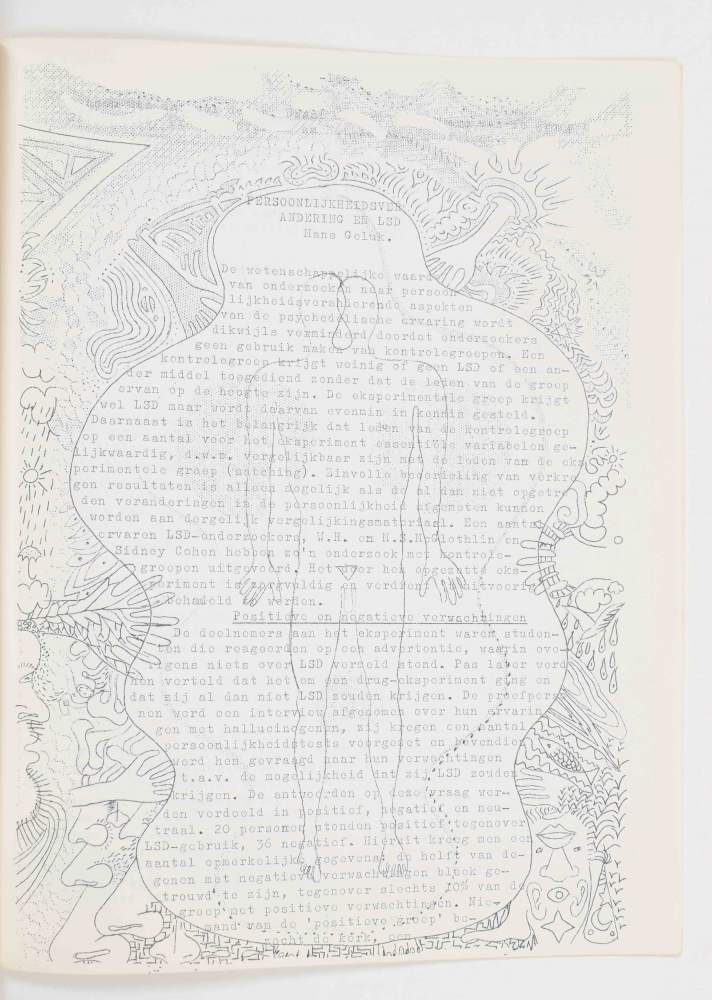 PERSOONLIJKHEIDSVER
ANDERING EN LSD
Hans Geluk.
De wetenschappelijke waard
van onderzoeken naar persoon
lijkheidsveranderende aspekten
van de psychedelische ervaring wordt
dikwijls verminderd doordat onderzoekers
geen gebruik maken van kontrolegroepen. Een
kontrolegroep krijgt weinig of geen LSD of een an-
der middel toegediend zonder dat de leden van de groep
ervan op de hoogte zijn. De eksperimentele groep krijgt
wel LSD maar wordt daarvan evenmin in kennis gesteld.
Daarnaast is het belangrijk dat leden van de kontrolegroep
op een aantal voor het eksperiment essentiële variabelen ge-
lijkwaardig, d.w.z. vergelijkbaar zijn met de leden van de eks
perimentele groep (matching). Zinvolle beoordeling van verkre
gen resultaten is alleen mogelijk als de al dan niet opgetre
den veranderingen in de persoonlijkheid afgemeten kunnen
worden aan dergelijk vergelijkingsmateriaal. Een aantal
ervaren LSD-onderzoekers, W.H. en M.S. McGlothlin en
Sidney Cohen hebben zo'n onderzoek met kontrole-
groepen uitgevoerd. Het door hen opgezette eks-
periment is zorgvuldig en verdient uitvoerig
behandeld te werden.
Positieve en negatieve verwachtingen
De deelnemers aan het eksperiment waren studen-
ten die reageerden op een advertentie, waarin ove-
rigens niets over LSD vermeld stond. Pas later werd
hun verteld dat het om een drug-eksperiment ging en
dat zij al dan niet LSD zouden krijgen. De proefpers
nen werd een interview afgenomen over hun ervarin
gen met hallucinogenen, zij kregen een aantal
persoonlijkheidstests voorgezet en bovendien
werd hen gevraagd naar hun verwachtingen
t.a.v. de mogelijkheid dat zij LSD zouden
krijgen. De antwoorden op deze vraag wer-
den verdeeld in positief, negatief en neu-
traal. 20 personen stonden positief tegenover
LSD-gebruik, 36 negatief. Hieruit kreeg men een
aantal opmerkelijke gegevens: de helft van de-
genen met negatieve verwachtingen bleek ge-
trouwd te zijn, tegenover slechts 10% van de
groep met positieve verwachtingen. Nie-
mand van de 'positieve groep' be-
zocht de kerk, een